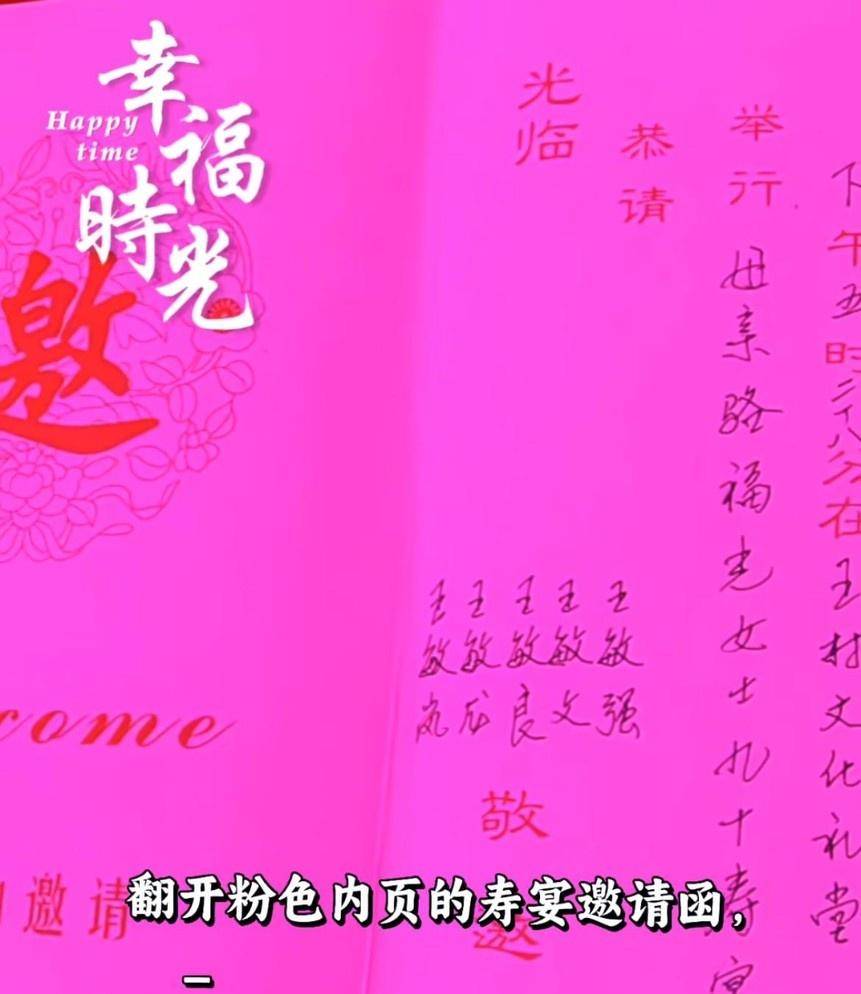 幸福時光
Happy
time
邀
come
邀请
下午五时二十八分在王村文化礼堂
举行 母亲骆福光女士九十寿宴
恭请
光临
王敏强
王敏文
王敏良
王敏龙
王敏岚
敬邀
翻开粉色内页的寿宴邀请函，